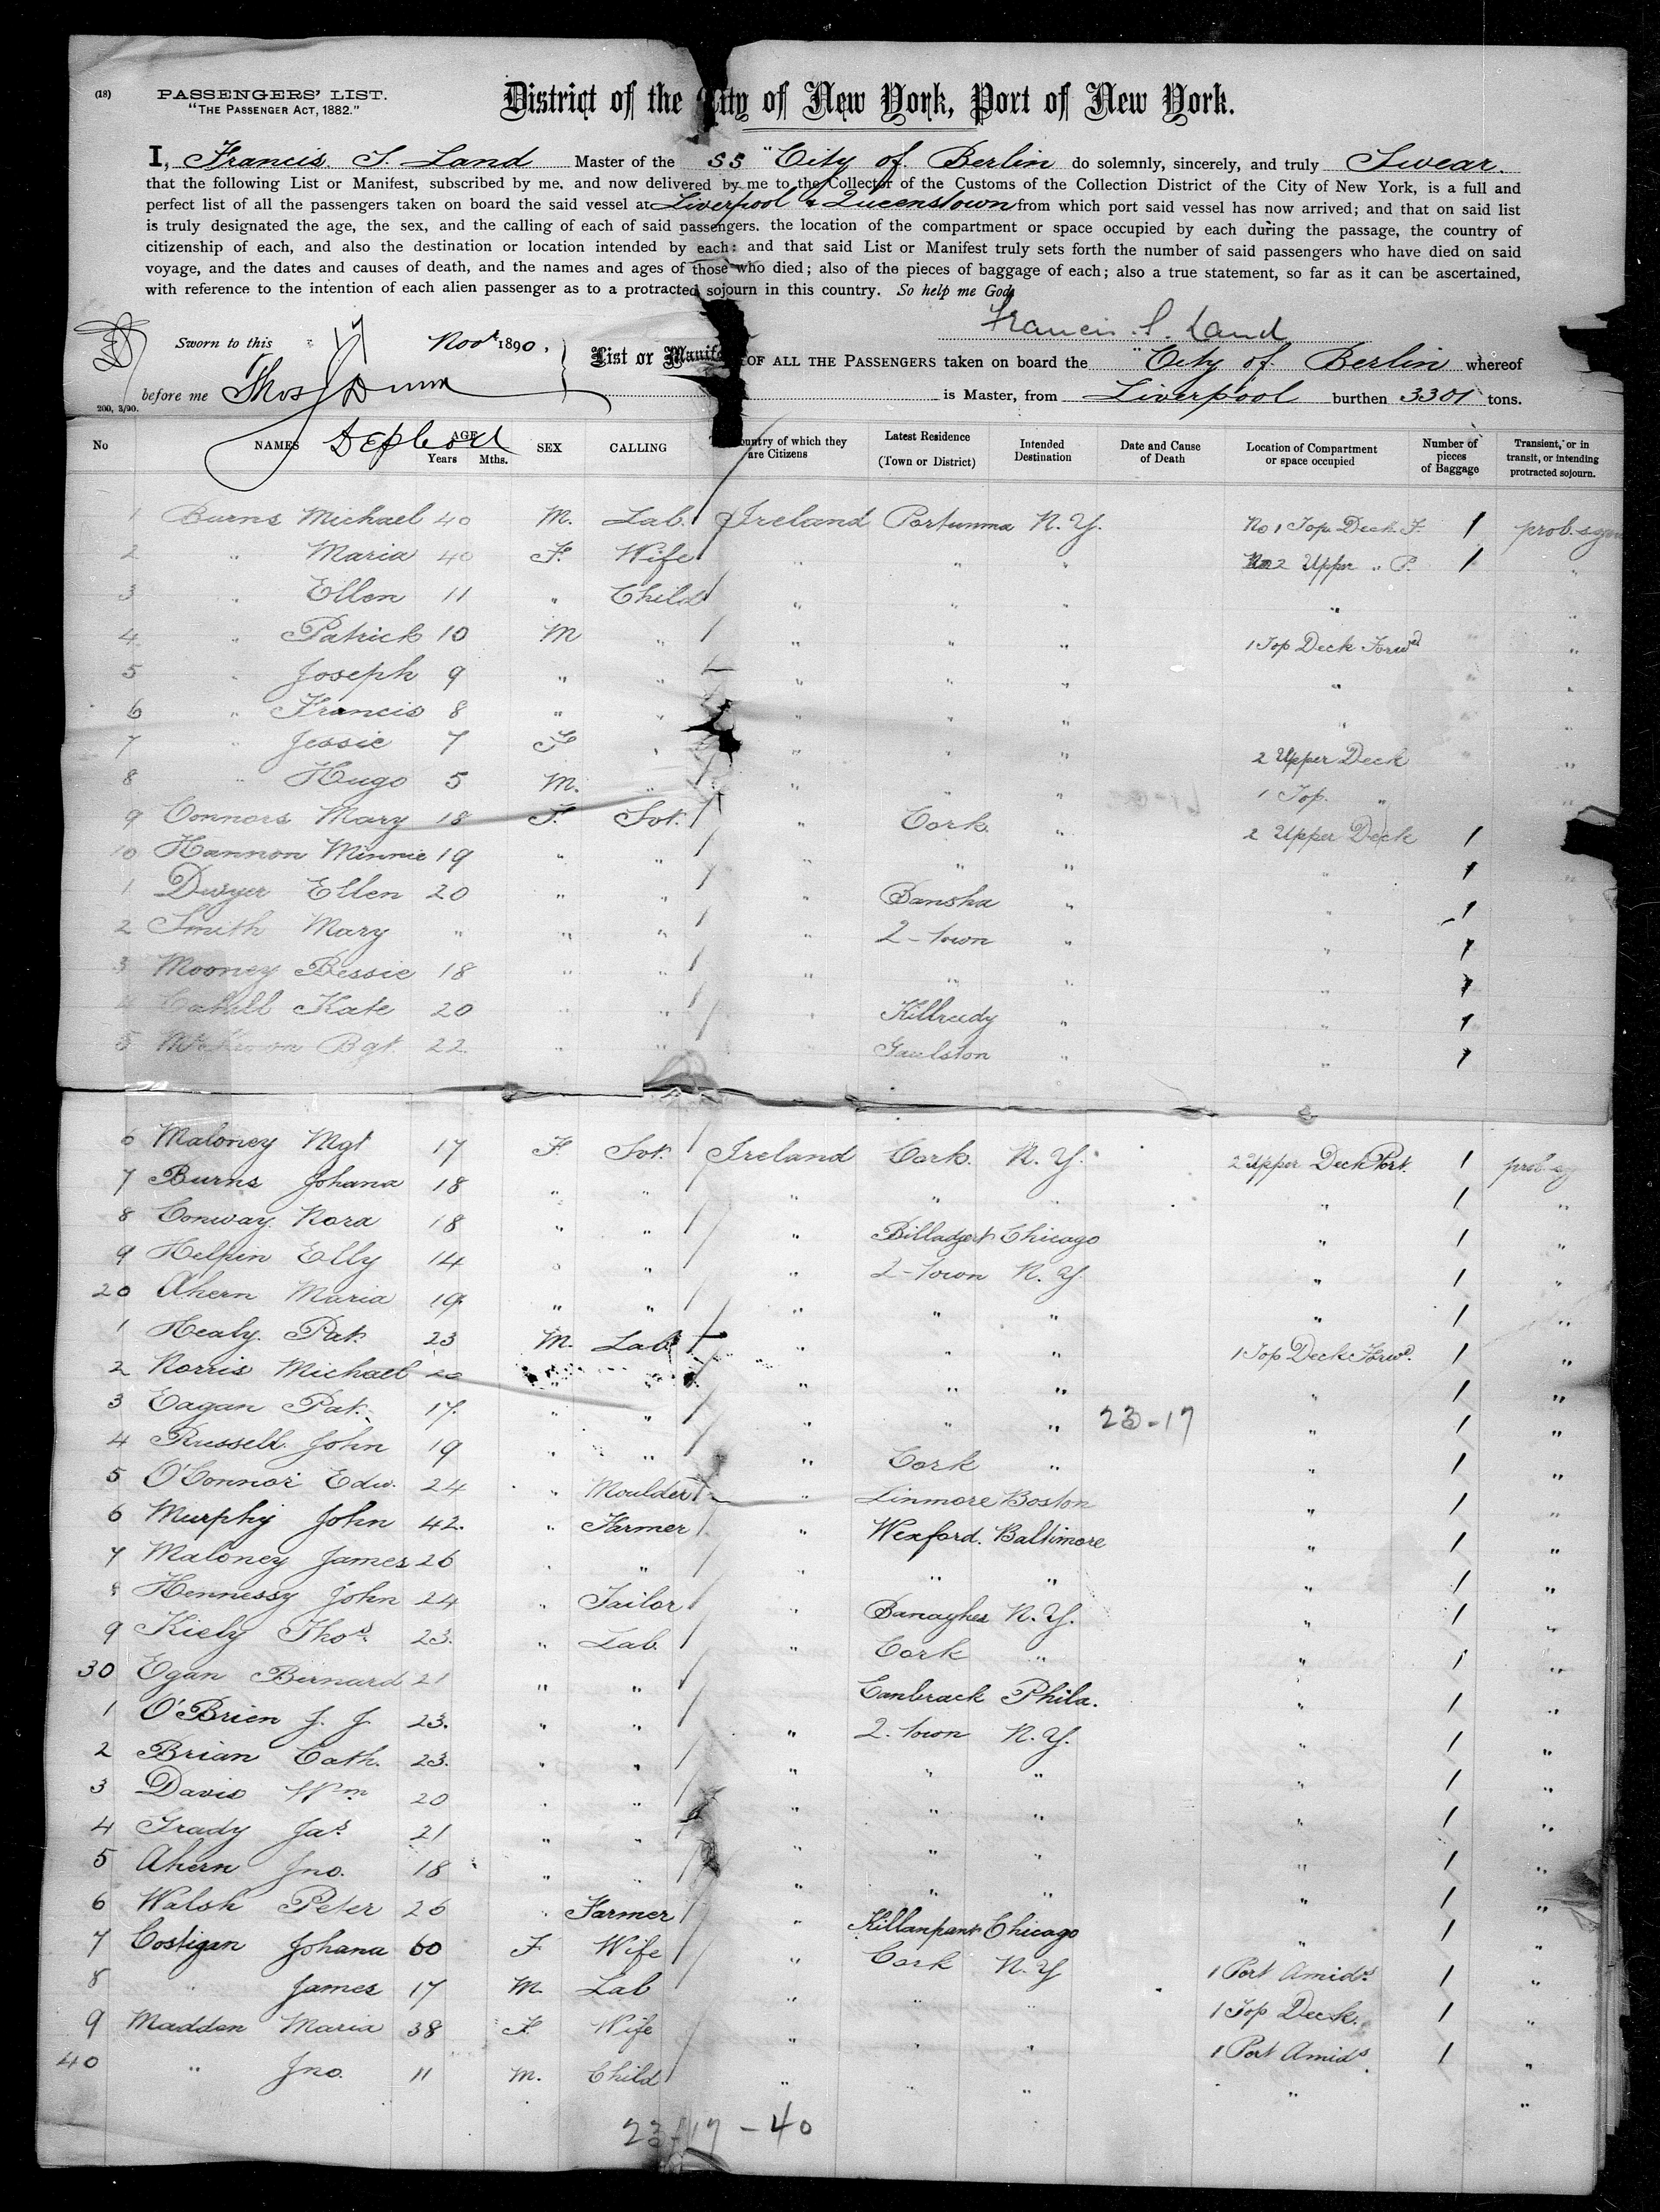 (18)
PASSENGERS' LIST.
"THE PASSENGER ACT, 1882."
District of the City of New York, Port of New York.
I, Francis S. Land Master of the SS "City of Berlin do solemnly, sincerely, and truly Swear.
that the following List or Manifest, subscribed by me, and now delivered by me to the Collector of the Customs of the Collection District of the City of New York, is a full and
perfect list of all the passengers taken on board the said vessel at Liverpool & Queenstown from which port said vessel has now arrived; and that on said list
is truly designated the age, the sex, and the calling of each of said passengers. the location of the compartment or space occupied by each during the passage, the country of
citizenship of each, and also the destination or location intended by each: and that said List or Manifest truly sets forth the number of said passengers who have died on said
voyage, and the dates and causes of death, and the names and ages of those who died; also of the pieces of baggage of each; also a true statement, so far as it can be ascertained,
with reference to the intention of each alien passenger as to a protracted sojourn in this country. So help me God,
Francis S. Land
Sworn to this 17 Novr 1890,
List or Manifest OF ALL THE PASSENGERS taken on board the "City of Berlin whereof
before me Thos J Dunn
is Master, from Liverpool burthen 3301 tons.
200, 3/90.
Dep Coll
No NAMES AGE Years Mths. SEX CALLING Country of which they are Citizens Latest Residence (Town or District) Intended Destination Date and Cause of Death Location of Compartment or space occupied Number of pieces of Baggage Transient, or in transit, or intending protracted sojourn.
1 Burns Michael 40 M. Lab. Ireland Portumna N.Y. No 1 Top Deck F. 1 prob. sgrn
2 " Maria 40 F. Wife " " " No 2 Upper " P. 1 "
3 " Ellen 11 " Child " " " " "
4 " Patrick 10 M " " " " 1 Top Deck Forwd "
5 " Joseph 9 " " " " " " "
6 " Francis 8 " " " " " " "
7 " Jessie 7 F " " " " 2 Upper Deck "
8 " Hugo 5 M. " " " " 1 Top. " "
9 Connors Mary 18 F. Svt. " Cork. " 2 Upper Deck 1 "
10 Hannon Minnie 19 " " " " " " 1 "
1 Dwyer Ellen 20 " " " Bansha " " 1
2 Smith Mary " " " " Q-town " " 1
3 Mooney Bessie 18 " " " " " " 1
4 Cahill Kate 20 " " " Killreedy " " 1
5 Bgt. 22 " " Gaulston " " 1
6 Maloney Mgt 17 F. Svt. Ireland Cork. N.Y. 2 Upper Deck Port. 1 prob. sg
7 Burns Johana 18 " " " " " " 1 "
8 Conway Nora 18 " " " Chicago " 1 "
9 Helpen Elly 14 " " " Q-town N.Y. " 1 "
20 Ahern Maria 19 " " " " " " 1 "
1 Healy Pat. 23 M. Lab. " " " 1 Top Deck Forwd. 1 "
2 Norris Michael 20 " " " " " " 1 "
3 Eagan Pat. 17. " " " " " 23-17 " 1 "
4 Russell John 19 " " " Cork " " 1 "
5 O'Connor Edw. 24 " Moulder " Linmore Boston " 1 "
6 Murphy John 42. " Farmer " Wexford. Baltimore " 1 "
7 Maloney James 26 " " " " " 1 "
8 Hennessy John 24 " Tailor " Banagher N.Y. " 1 "
9 Kiely Thos. 23. " Lab. " Cork " " 1 "
30 Egan Bernard 21 " " Canbrack Phila. " 1 "
1 O'Brien J. J. 23. " " " Q.town N.Y. " 1 "
2 Brian Cath. 23. " " " " " " 1 "
3 Davis Wm 20 " " " " " " 1 "
4 Grady Jas 21 " " " " " " 1 "
5 Ahern Jno. 18 " " " " " " 1 "
6 Walsh Peter 26 " Farmer " Chicago " 1 "
7 Costigan Johana 60 F Wife " Cork N.Y 1 Port Amids 1 "
8 " James 17 M. Lab " " " 1 Top Deck. 1 "
9 Madden Maria 38 F. Wife " " " 1 Port Amids 1 "
40 " Jno. 11 M. Child " " " " "
23-17-40